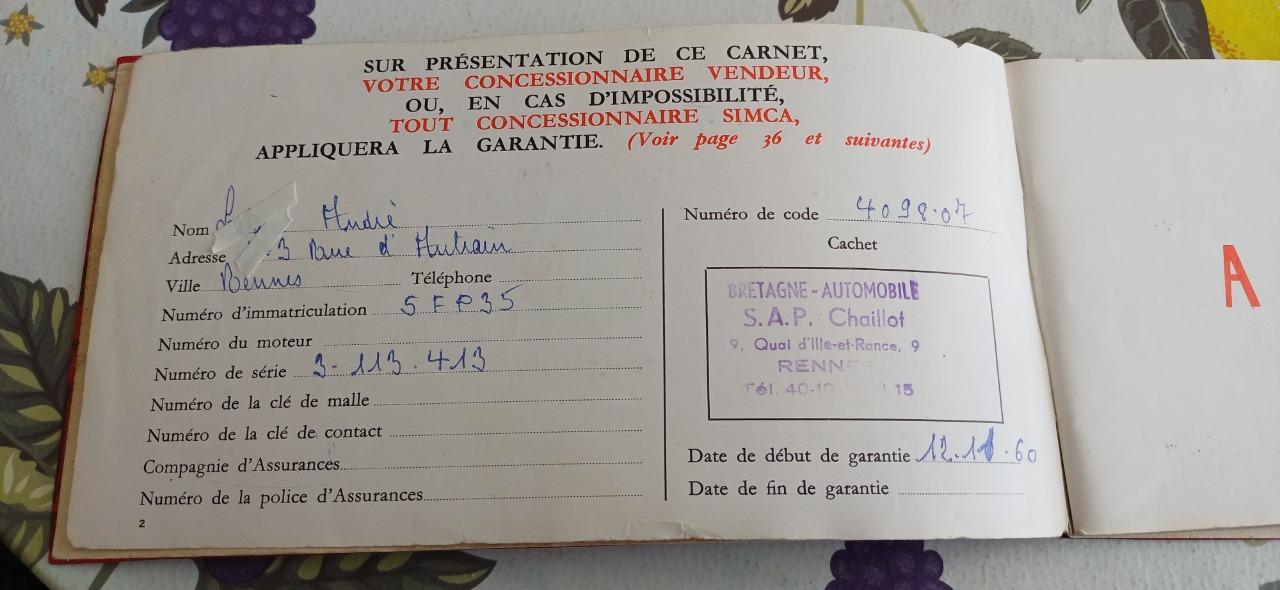 SUR PRÉSENTATION DE CE CARNET,
VOTRE CONCESSIONNAIRE VENDEUR,
OU, EN CAS D'IMPOSSIBILITÉ,
TOUT CONCESSIONNAIRE SIMCA,
APPLIQUERA LA GARANTIE. (Voir page 36 et suivantes)
Nom André
Adresse 3 Rue d'Antrain
Ville Rennes Téléphone
Numéro d'immatriculation 5 F P 35
Numéro du moteur
Numéro de série 3-113.413
Numéro de la clé de malle
Numéro de la clé de contact
Compagnie d'Assurances
Numéro de la police d'Assurances
2
Numéro de code 4098.07
Cachet
BRETAGNE-AUTOMOBILE
S.A.P. Chaillot
9, Quai d'Ille-et-Rance, 9
RENNES
Tél. 40-10 15
Date de début de garantie 12.11.60
Date de fin de garantie
A